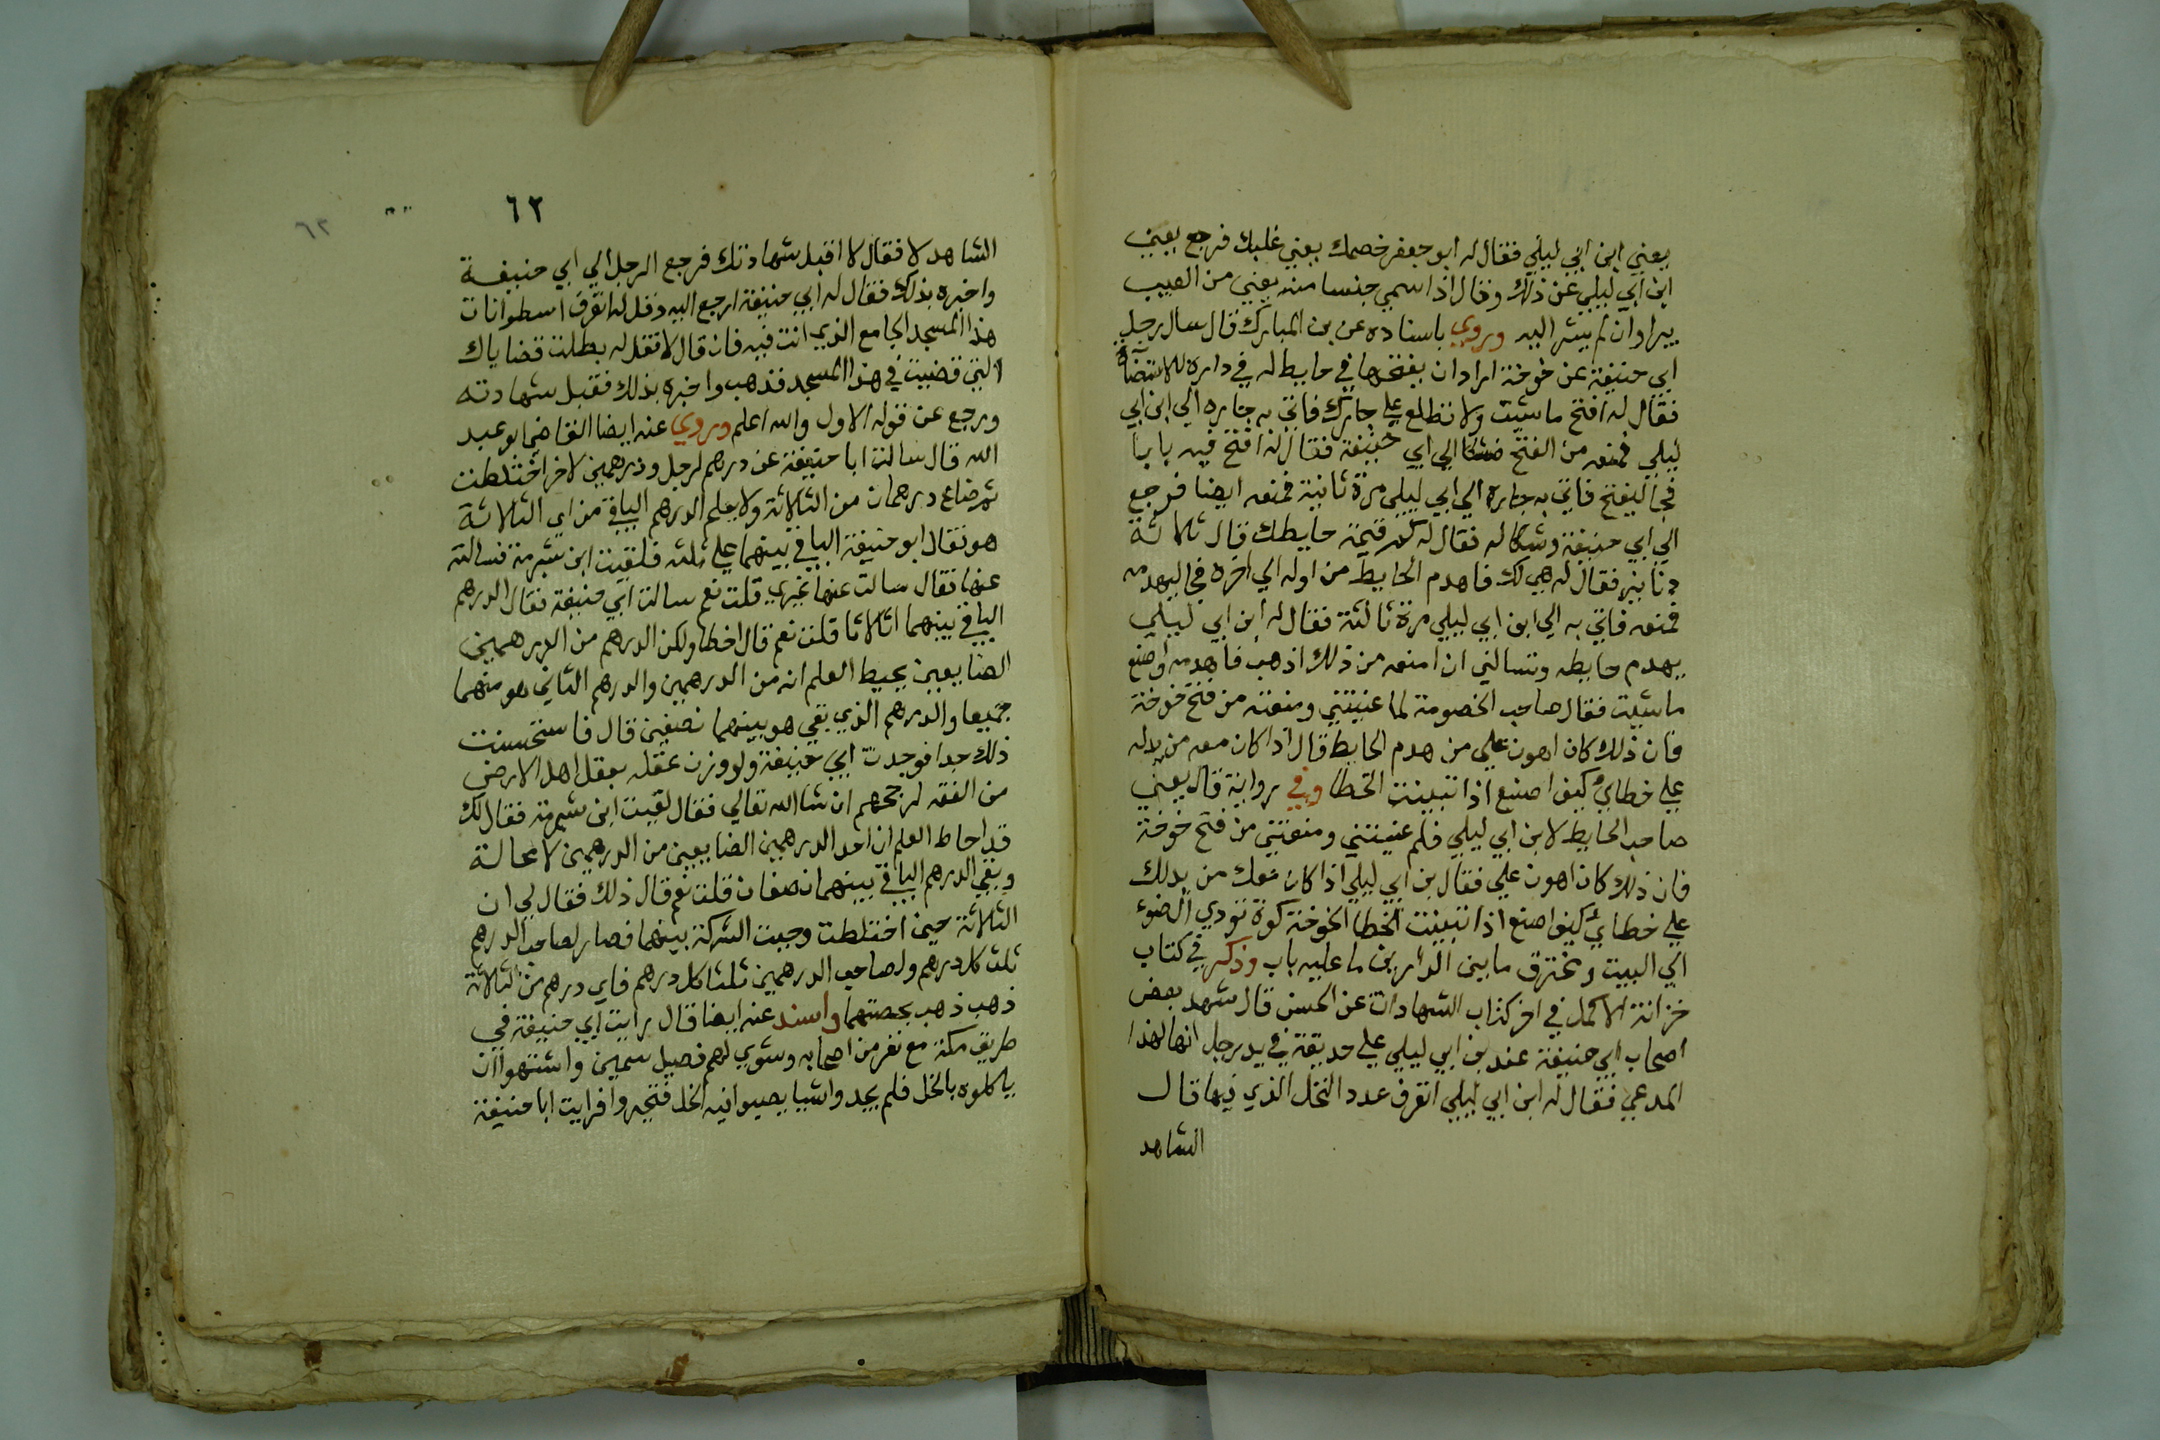 يعني ابن ابي ليلي فقال له ابو جعفر خصمك يعني غلبك فرجع يعني
ابن ابي ليلي عن ذلك وقال اذا سمي جنسا منه يعني من العيب
يبرا وان لم يشر اليه وروي باسناده عن بن المبارك قال سال رجل
ابي حنيفة عن خوخة اراد ان يفتحها في حايط له في داره للاستضاة
فقال له افتح ما شيت ولا تطلع علي جارك فاتي به جاره الي ابن ابي
ليلي فمنعه من الفتح فشكا الي ابي حنيفة فقال له افتح فيه بابا
فجا ليفتح فاتي به جاره الي ابي ليلي مرة ثانية فمنعه ايضا فرجع
الي ابي حنيفة وشكا له فقال له كم قيمة حايطك قال ثلاثة
دنانير فقال له هي لك فاهدم الحايط من اوله الي اخره فجا ليهدمه
فمنعه فاتي به الي ابن ابي ليلي مرة ثالثة فقال له ابن ابي ليلي
يهدم حايطه وتسالني ان امنعه من ذلك اذهب فاهدمه واصنع
ما شيت فقال صاحب الخصومة لما عنيتني ومنعته من فتح خوخة
فان ذلك كان اهون علي من هدم الحايط قال اذا كان معه من يدله
علي خطاي كيف اصنع اذا تبينت الخطا وفي رواية قال يعني
صاحب الحايط لابن ابي ليلي فلم عنيتني ومنعتني من فتح خوخة
فان ذلك كان اهون علي فقال بن ابي ليلي اذا كان معك من يدلك
علي خطاي كيف اصنع اذا تبينت الخطا الخوخة كوة تودي الضوء
الي البيت ومخترق ما بين الدارين ما عليه باب وذكر في كتاب
خزانة الاكمل في اخر كتاب الشهادات عن الحسن قال شهد بعض
اصحاب ابي حنيفة عند بن ابي ليلي علي حديقة في يد رجل انها لهذا
المدعي فقال له ابن ابي ليلي اتعرف عدد النخل الذي فيها قال
الشاهد
٦٢
٦٢
الشاهد لا فقال لا اقبل شهادتك فرجع الرجل الي ابي حنيفة
واخبره بذلك فقال له ابي حنيفة ارجع اليه وقل له اتعرف اسطوانات
هذا المسجد الجامع الذي انت فيه فان قال لا فقل له بطلت قضاياك
التي قضيت في هذا المسجد فذهب واخبره بذلك فقبل شهادته
ورجع عن قوله الاول والله اعلم وروي عنه ايضا القاضي ابو عبد
الله قال سالت ابا حنيفة عن درهم لرجل ودرهمين لاخر اختلطت
ثم ضاع درهمان من الثلاثة ولا يعلم الدرهم الباقي من اي الثلاثة
هو فقال ابو حنيفة الباقي بينهما علي ثلثه فلقيت ابن شبرمة فسالته
عنها فقال سالت عنها غيري قلت نعم سالت ابي حنيفة فقال الدرهم
الباقي بينهما اثلاثا قلت نعم قال اخطا ولكن الدرهم من الدرهمين
الضايعين يحيط العلم انه من الدرهمين والدرهم الثاني هو منهما
جميعا والدرهم الذي بقي هو بينهما نصفين قال فاستحسنت
ذلك جدا فوجدت ابي حنيفة ولو وزن عقله بعقل اهل الارض
من الفقه لرجحهم ان شا الله تعالي فقال لقيت ابن شبرمة فقال لك
قد احاط العلم ان احد الدرهمين الضايعين من الدرهمين لا محالة
وبقي الدرهم الباقي بينهما نصفان قلت نعم قال ذلك فقال لي ان
الثلاثة حين اختلطت وجبت الشركة بينهما فصار لصاحب الدرهم
ثلث كل درهم ولصاحب الدرهمين ثلثا كل درهم فاي درهم من الثلاثة
ذهب ذهب بحصتهما واسند عنه ايضا قال رايت ابي حنيفة في
طريق مكة مع نفر من اصحابه وشوي لهم فصيل سمين واشتهوا ان
ياكلوه بالخل فلم يجدوا شيا يصبوا فيه الخل فتحيروا فرايت ابا حنيفة